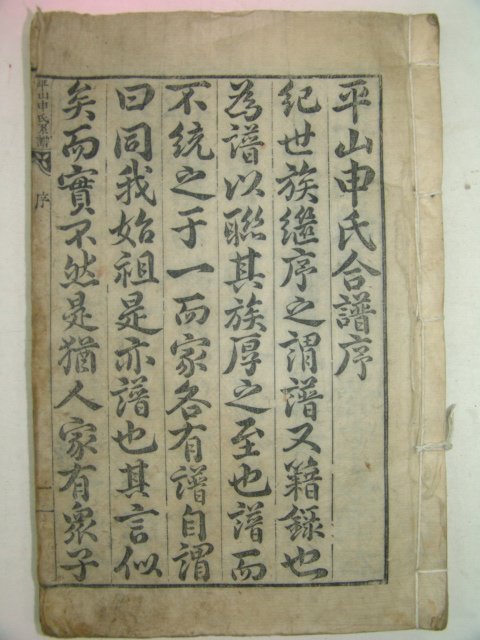 平山申氏合譜序
紀世族繼序之謂譜又籍錄也
為譜以聯其族厚之至也譜而
不統之于一而家各有譜自謂
曰同我始祖是亦譜也其言似
矣而實不然是猶人家有衆子
平山申氏
序